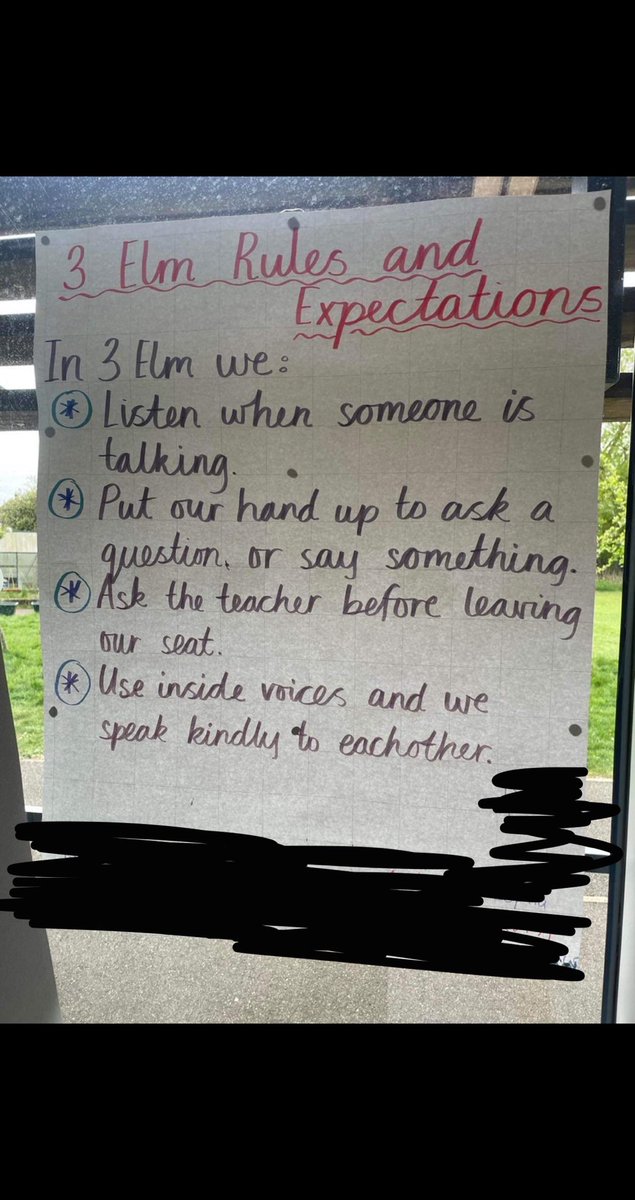 3 Elm Rules and
Expectations
In 3 Elm we:
* Listen when someone is
talking.
* Put our hand up to ask a
question, or say something.
* Ask the teacher before leaving
our seat.
* Use inside voices and we
speak kindly to eachother.